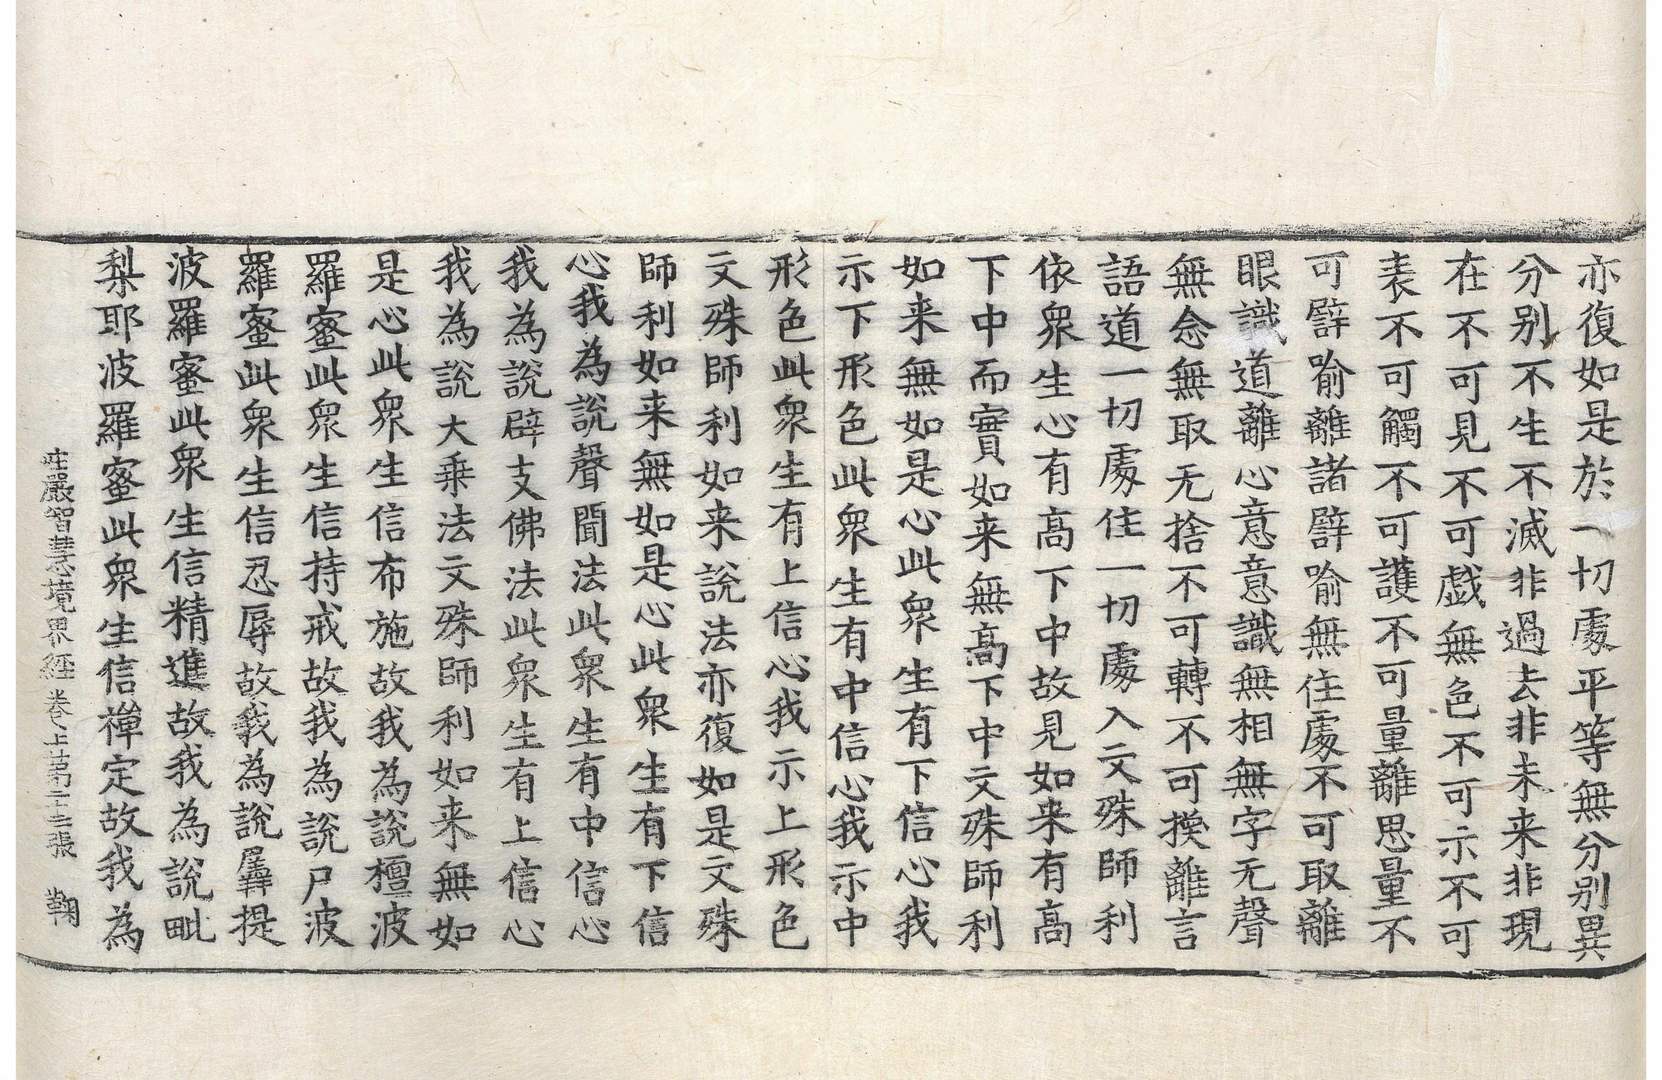 亦復如是於一切處平等無分别異
分别不生不滅非過去非未来非現
在不可見不可戲無色不可示不可
表不可觸不可護不可量離思量不
可譬喻離諸譬喻無住處不可取離
眼識道離心意意識無相無字无聲
無念無取无捨不可轉不可換離言
語道一切處住一切處入文殊師利
依衆生心有高下中故見如来有高
下中而實如来無高下中文殊師利
如来無如是心此衆生有下信心我
示下形色此衆生有中信心我示中
形色此衆生有上信心我示上形色
文殊師利如来說法亦復如是文殊
師利如来無如是心此衆生有下信
心我為說聲聞法此衆生有中信心
我為說辟支佛法此衆生有上信心
我為說大乗法文殊師利如来無如
是心此衆生信布施故我為說檀波
羅蜜此衆生信持戒故我為說尸波
羅蜜此衆生信忍辱故我為說羼提
波羅蜜此衆生信精進故我為說毗
梨耶波羅蜜此衆生信禅定故我為
莊嚴智慧境界經卷上第二十三張 鞠